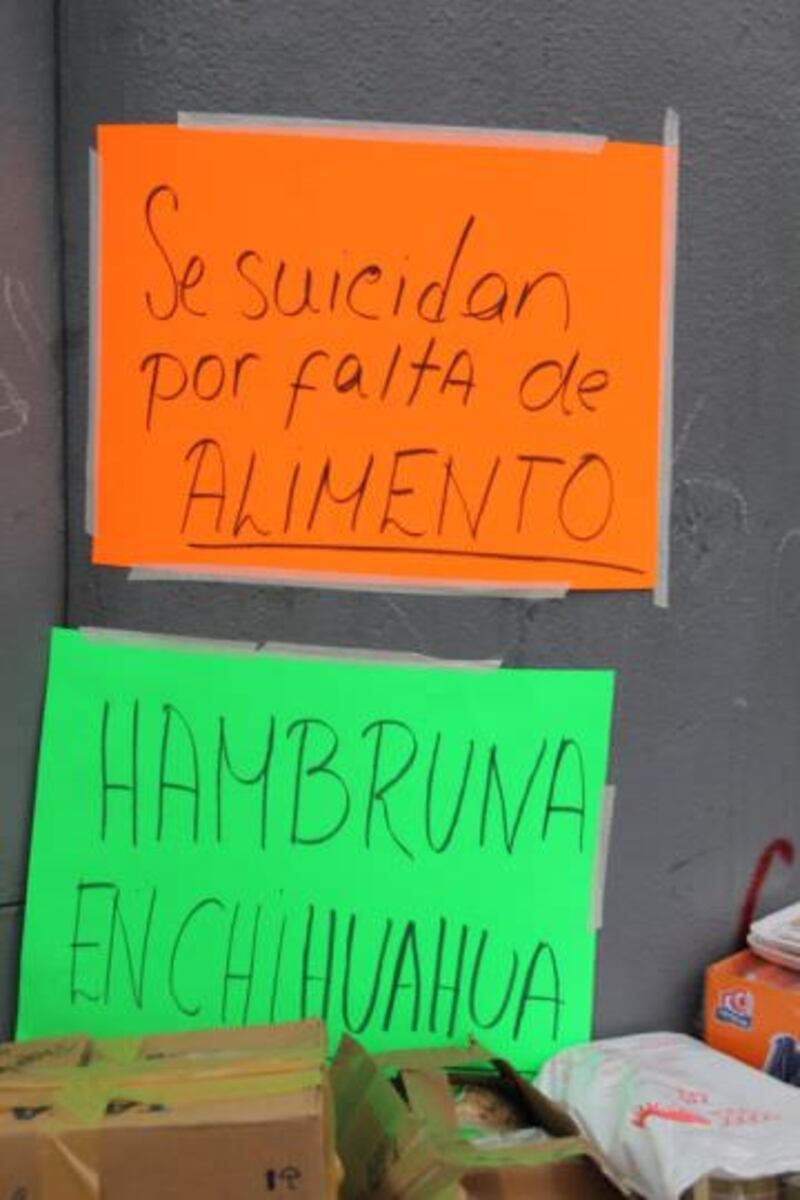 Se suicidan
por faltA de
ALIMENTO
HAMBRUNA
EN CHiHUAHUA